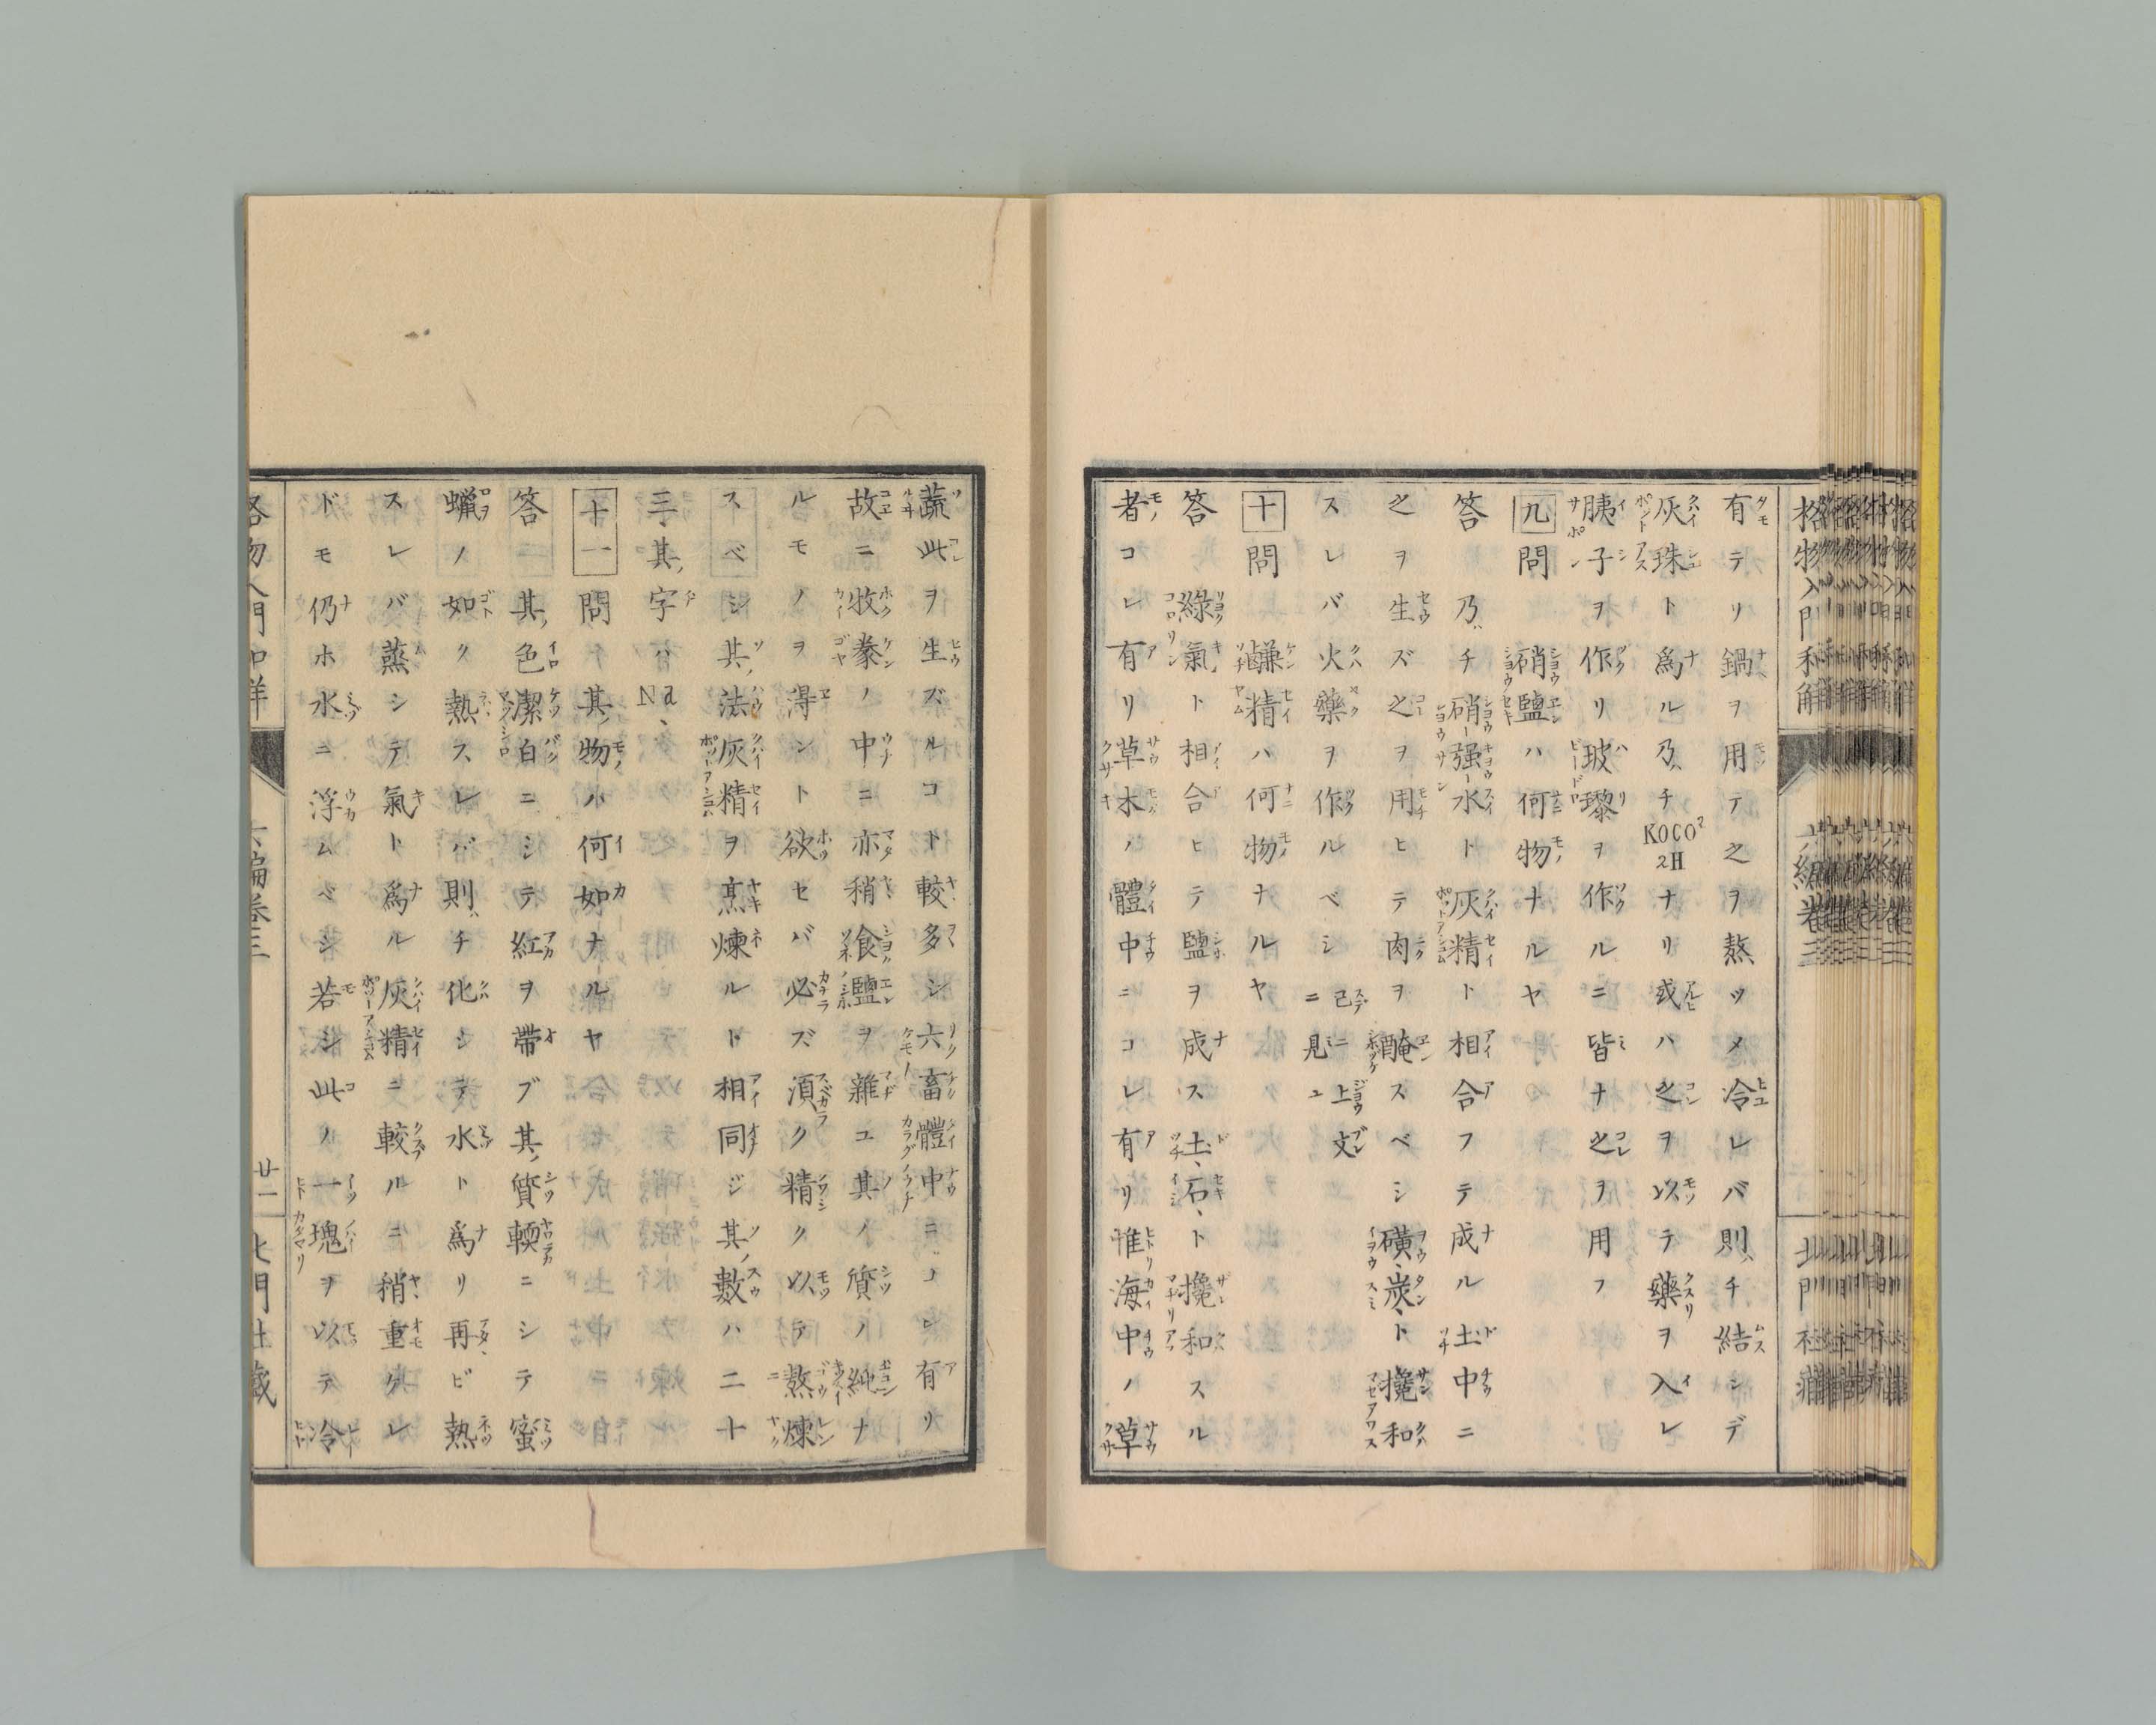 格物入門和解
六編卷三
北門社藏
有テリ鍋ヲ用テ之ヲ熬ツメ冷レバ則チ結シデ
灰珠ト爲ル乃チKOCO²2Hナリ或ハ之ヲ以テ藥ヲ入レ
胰子ヲ作リ玻瓈ヲ作ルニ皆ナ之ヲ用フ
九 問 硝鹽ハ何物ナルヤ
答 乃チ硝强水ト灰精ト相合フテ成ル土中ニ
之ヲ生ズ之ヲ用ヒテ肉ヲ醃スベシ磺炭ト攙和
スレバ火藥ヲ作ルベシ 已ニ上文ニ見ユ
十 問 鹻精ハ何物ナルヤ
答 綠氣ト相合ヒテ鹽ヲ成ス土石ト攙和スル
者コレ有リ草木ノ體中ニコレ有リ惟海中ノ草
蔬此ヲ生ズルコト較多シ六畜體中ニコレ有リ
故ニ牧豢ノ中ニ亦稍食鹽ヲ雜ユ其ノ質ノ純ナ
ルモノヲ淂ント欲セバ必ズ須ク精ク以テ熬煉
スベシ其法灰精ヲ烹煉ルト相同ジ其數ハ二十
三其字ハNa、
十一 問 其物ハ何如ナルヤ
答 其色潔白ニシテ紅ヲ帶ブ其質輭ニシテ蜜
蠟ノ如ク熱スレバ則チ化シテ水ト爲リ再ビ熱
スレバ蒸シテ氣ト爲ル灰精ニ較ルニ稍重ケレ
ドモ仍ホ水ニ浮ムベシ若シ此ノ一塊ヲ以テ冷
格物入門和解
六編卷三
廿一
北門社藏